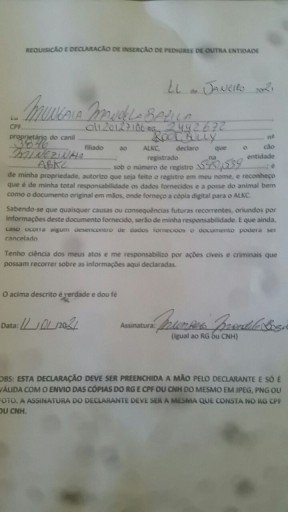 REQUISIÇÃO E DECLARAÇÃO DE INSERÇÃO DE PEDIGREE DE OUTRA ENTIDADE
11 de JANEIRO 2021
Eu
CPF
proprietário do canil BULLY nº
filiado ao ALKC declaro que o cão
registrado na entidade
sob o número de registro e
de minha propriedade, autorizo que seja feito o registro em meu nome, e reconheço
que é de minha total responsabilidade os dados fornecidos e a posse do animal bem
como o documento original em mãos, onde forneço a cópia digital para o ALKC.
Sabendo-se que quaisquer causas ou consequências futuras recorrentes, oriundos por
informações deste documento fornecido, serão de minha responsabilidade. E que ainda,
caso ocorra algum desencontro de dados fornecidos o documento poderá ser
cancelado.
Tenho ciência dos meus atos e me responsabilizo por ações cíveis e criminais que
possam recorrer sobre as informações aqui declaradas.
O acima descrito é verdade e dou fé
Data: 11/01/2021 Assinatura:
(Igual ao RG ou CNH)
OBS: ESTA DECLARAÇÃO DEVE SER PREENCHIDA A MÃO PELO DECLARANTE E SÓ É
VÁLIDA COM O ENVIO DAS CÓPIAS DO RG E CPF OU CNH DO MESMO EM JPEG, PNG OU
FOTO. A ASSINATURA DO DECLARANTE DEVE SER A MESMA QUE CONSTA NO RG CPF
OU CNH.